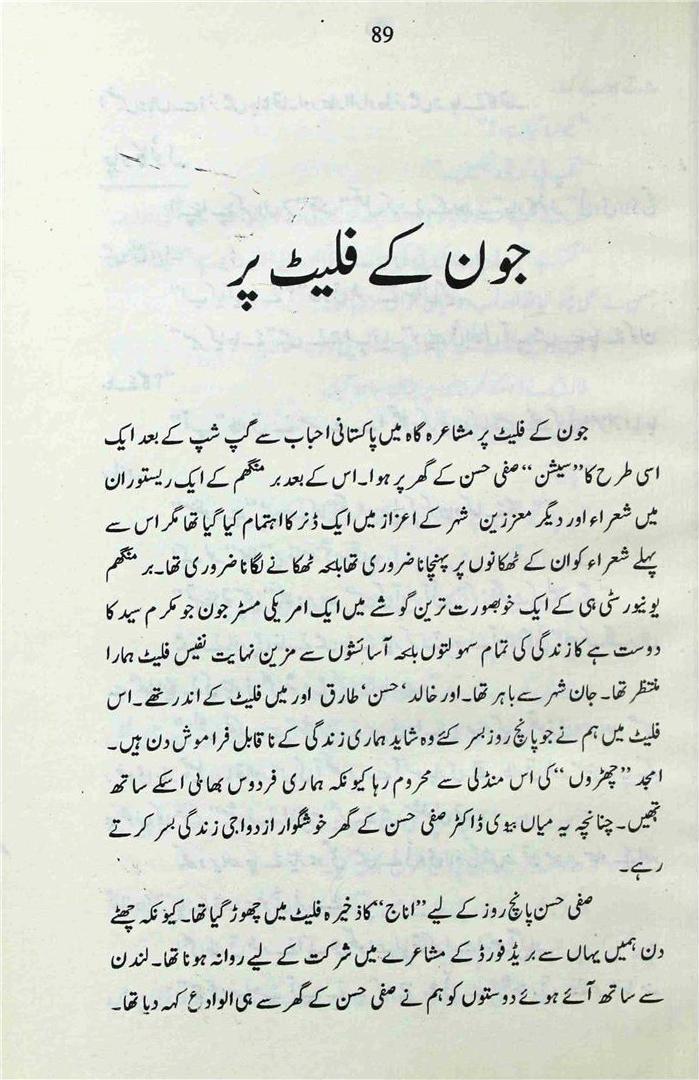 89
جون کے فلیٹ پر
جون کے فلیٹ پر مشاعرہ گاہ میں پاکستانی احباب سے گپ شپ کے بعد ایک
اسی طرح کا ”سیشن“ صفی حسن کے گھر پر ہوا۔ اس کے بعد برمنگھم کے ایک ریستوران
میں شعراء اور دیگر معززین شہر کے اعزاز میں ایک ڈنر کا اہتمام کیا گیا تھا مگر اس سے
پہلے شعراء کو ان کے ٹھکانوں پر پہنچانا ضروری تھا بلکہ ٹھکانے لگانا ضروری تھا۔ برمنگھم
یونیورسٹی ہی کے ایک خوبصورت ترین گوشے میں ایک امریکی مسٹر جون جو مکرم سید کا
دوست ہے کا زندگی کی تمام سہولتوں بلکہ آسائشوں سے مزین نہایت نفیس فلیٹ ہمارا
منتظر تھا۔ جان شہر سے باہر تھا۔ اور خالد، حسن، طارق اور میں فلیٹ کے اندر تھے۔ اس
فلیٹ میں ہم نے جو پانچ روز بسر کئے وہ شاید ہماری زندگی کے ناقابل فراموش دن ہیں۔
امجد ”چھڑوں“ کی اس منڈلی سے محروم رہا کیونکہ ہماری فردوس بھابی اسکے ساتھ
تھیں۔ چنانچہ یہ میاں بیوی ڈاکٹر صفی حسن کے گھر خوشگوار ازدواجی زندگی بسر کرتے
رہے۔
صفی حسن پانچ روز کے لیے ”اناج“ کا ذخیرہ فلیٹ میں چھوڑ گیا تھا۔ کیونکہ چھٹے
دن ہمیں یہاں سے بریڈ فورڈ کے مشاعرے میں شرکت کے لیے روانہ ہونا تھا۔ لندن
سے ساتھ آئے ہوئے دوستوں کو ہم نے صفی حسن کے گھر سے ہی الوداع کہہ دیا تھا۔